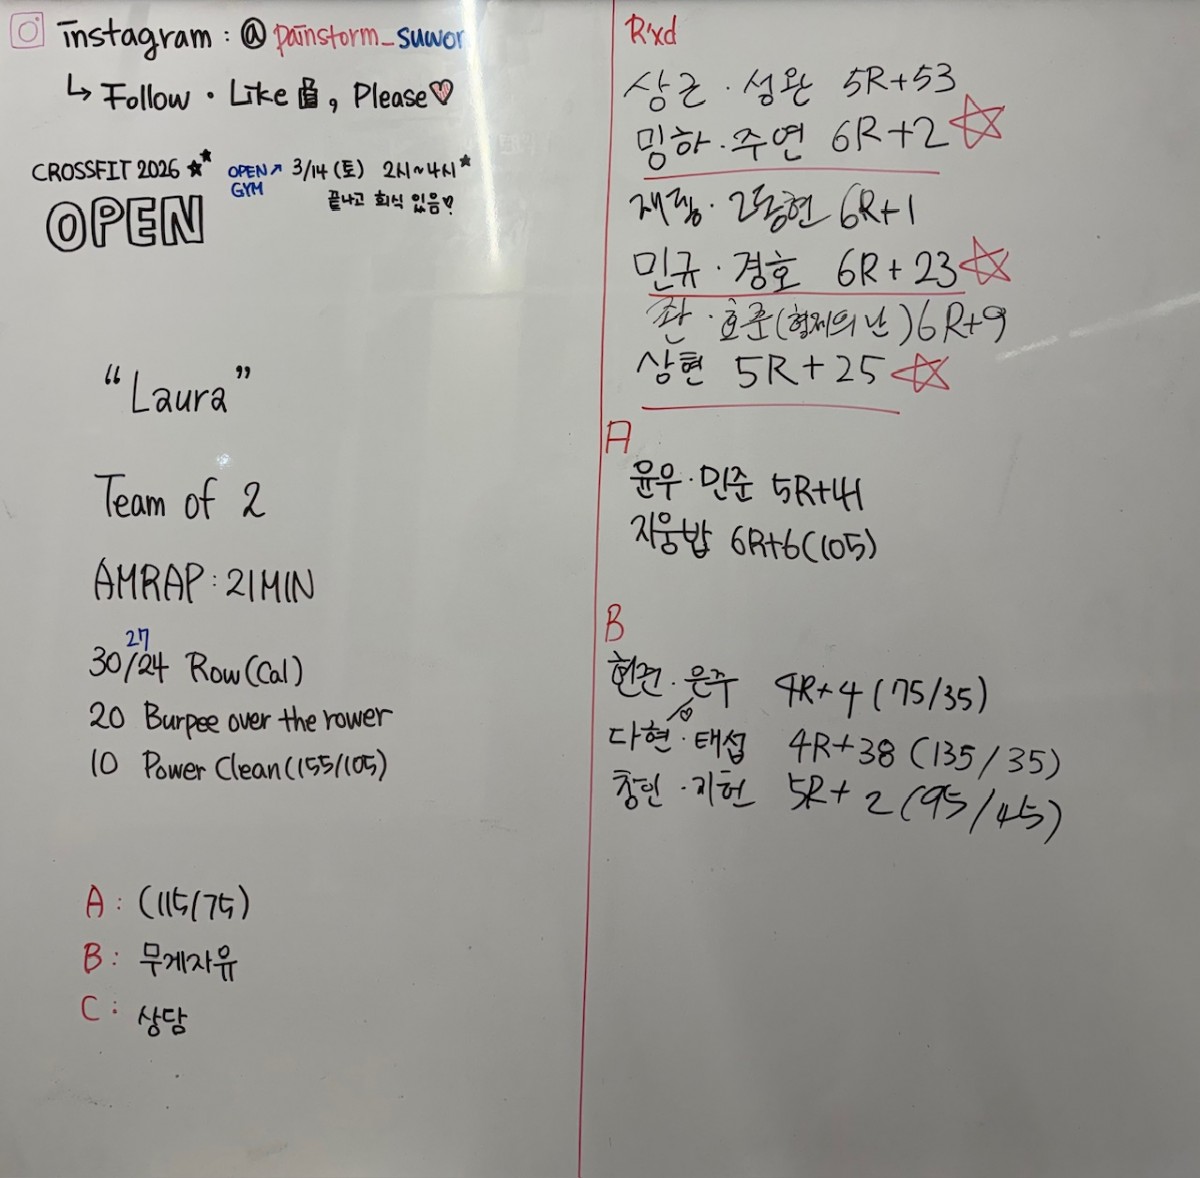 instagram : @ painstorm_suwon
↳ Follow · Like 👍, Please♡
CROSSFIT 2026 ★★
OPEN
OPEN GYM ↗ 3/14 (토) 2시~4시★
끝나고 회식 있음♡
"Laura"
Team of 2
AMRAP : 21MIN
27
30/24 Row(Cal)
20 Burpee over the rower
10 Power Clean(155/105)
A : (115/75)
B : 무게자유
C : 상담
R'xd
상근 · 성완 5R+53
밍하 · 주연 6R+2 ☆
재필 · 2동현 6R+1
민규 · 경호 6R+23 ☆
호준(형제의 난) 6R+9
상현 5R+25 ☆
A
윤우 · 민준 5R+41
지웅밥 6R+6(105)
B
은주 4R+4 (75/35)
다현 · 태섭 4R+38 (135/35)
창민 · 지헌 5R+2 (95/45)